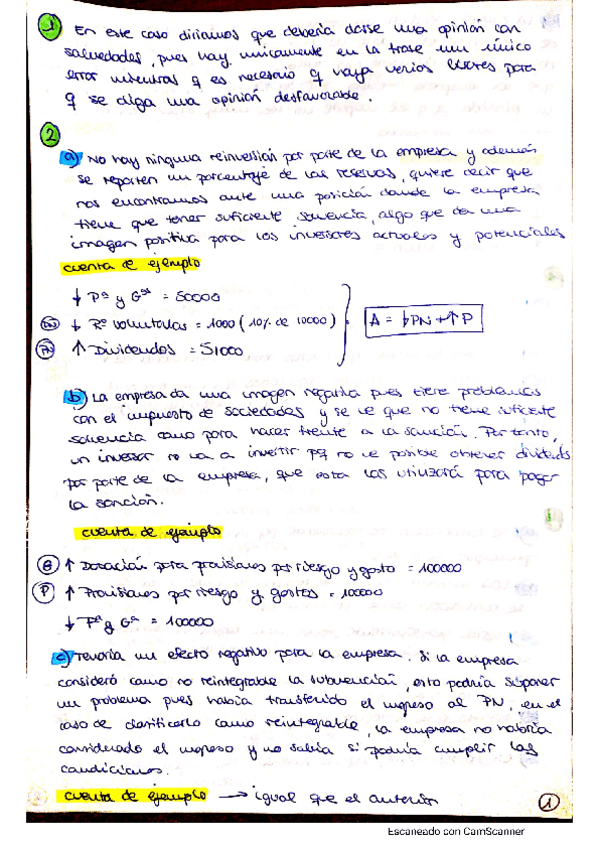 1 En este caso diríamos que debería darse una opinión con
salvedades, pues hay unicamente en la frase un único
error mientras q es necesario q haya varios errores para
q se diga una opinión desfavorable.
2
a) No hay ninguna reinversión por parte de la empresa y además
se reparten un porcentaje de las reservas, quiere decir que
nos encontramos ante una posición donde la empresa
tiene que tener suficiente solvencia, algo que da una
imagen positiva para los inversores actuales y potenciales
cuenta de ejemplo
↓ Pª y Gªˢ = 50000
PN ↓ Rª voluntarias = 1000 (10% de 10000)
A = ↓PN + ↑P
PN ↑ Dividendos = 51000
b) La empresa da una imagen negativa pues tiene problemas
con el impuesto de sociedades y se ve que no tiene suficiente
solvencia como para hacer frente a la sanción. Por tanto,
un inversor no va a invertir pq no ve posible obtener dividends
por parte de la empresa, que esta los utilizará para pagar
la sanción.
cuenta de ejemplo
↑ Dotación para provisiones por riesgo y gasto = 100000
P ↑ Provisiones por riesgo y gastos = 100000
↓ Pª y Gª = 100000
c) Tendría un efecto negativo para la empresa. Si la empresa
consideró como no reintegrable la subvención, esto podría suponer
un problema pues habría transferido el ingreso al PN, en el
caso de clasificarlo como reintegrable, la empresa no habría
considerado el ingreso y no sabía si podría cumplir las
condiciones.
cuenta de ejemplo → igual que el anterior
1
Escaneado con CamScanner